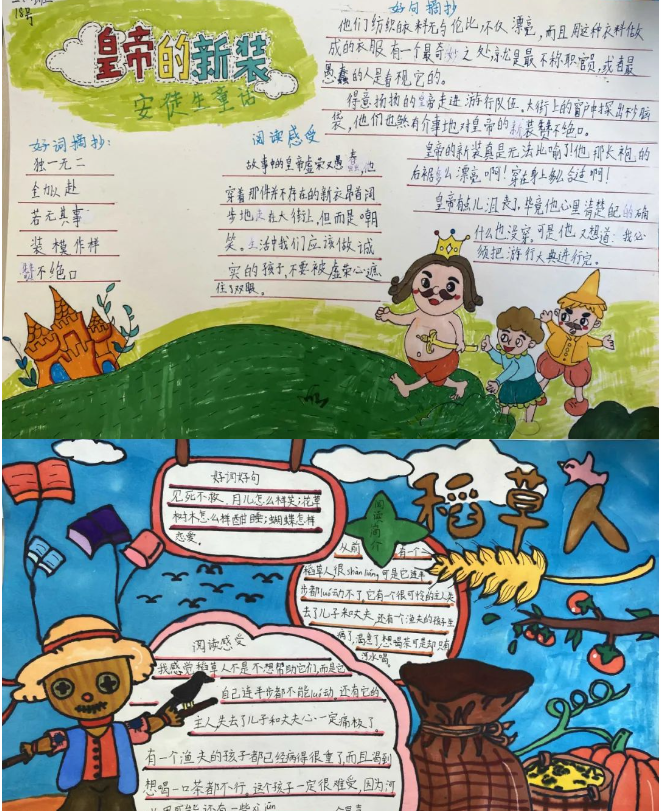 18号
皇帝的新装
安徒生童话
好词摘抄:
独一无二
全力以赴
若无其事
装模作样
赞不绝口
阅读感受
故事中的皇帝虚荣又愚蠢,他
穿着那件并不存在的新衣昂首阔
步地走在大街上,但而是嘲
笑。生活中我们应该做诚
实的孩子,不要被虚荣心遮
住了双眼。
好句摘抄
他们纺织的衣料无与伦比,不仅漂亮,而且用这种衣料做
成的衣服有一个最奇妙之处,就是最不称职官员,或者最
愚蠢的人是看不见它的。
得意扬扬的皇帝走进游行队伍。大街上的窗户中探出不少脑
袋,他们也煞有介事地对皇帝的新装赞不绝口。
皇帝的新装真是无法比喻了!他那长袍的
后裾多么漂亮啊!穿在身上多么合适啊!
皇帝有点儿沮丧了,毕竟他心里清楚的确
什么也没穿,可是他又想道:我必
须把游行大典进行完。
好词好句
见死不救、月儿怎么样笑;花草
树木怎么样酣睡;蝴蝶怎样
恋爱。
稻草人
阅读简介
从前 有一个
稻草人,很shàn liáng,可是它连半
步都luó动不了,它有一个很可怜的主人失
去了儿子和丈夫,还有一个渔夫的孩子生
病了,渴急了,想喝茶可是却只有
河水喝。
阅读感受
我感觉稻草人不是不想帮助它们,而是它
自己连半步都不能luó动,还有它的
主人失去了儿子和丈夫心一定痛极了。
有一个渔夫的孩子都已经病得很重了,而且渴到
想喝一口茶都不行。这个孩子一定很难受,因为河